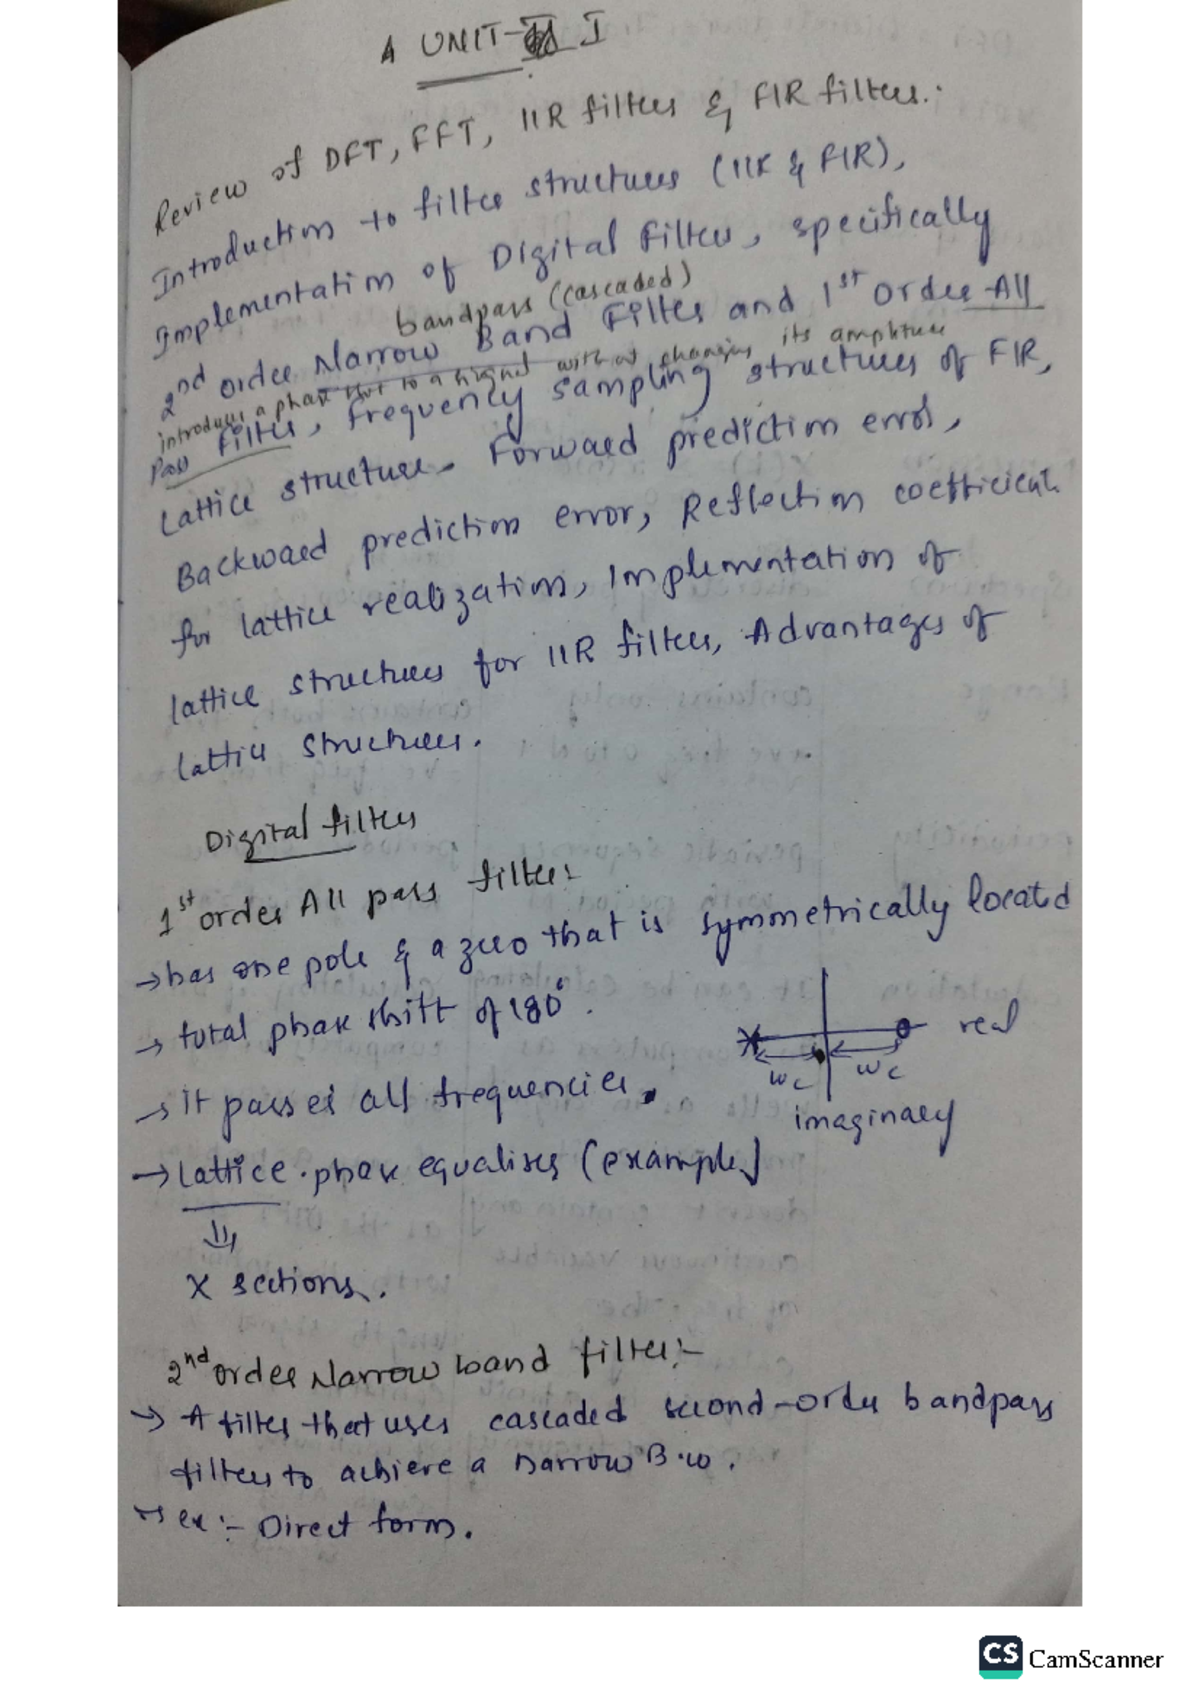 A UNIT- I
Review of DFT, FFT, IIR filters & FIR filters:
Introduction to filter structures (IIR & FIR),
Implementation of Digital Filters, specifically
bandpass (cascaded)
2nd order Narrow Band Filter and 1st order All
introduces a phase shift to a signal without changing its amplitude
Pass Filter, Frequency sampling structures of FIR,
Lattice structure. Forward prediction error,
Backward prediction error, Reflection coefficient
for lattice realization, Implementation of
lattice structures for IIR filters, Advantages of
lattice structures.
Digital filters
1st order All pass filter:
→ has one pole & a zero that is symmetrically located
→ total phase shift of 180°.
real
wc wc
→ it passes all frequencies.
imaginary
→ Lattice phase equalizers (example)
⇓
X sections.
2nd order Narrow band filter:-
→ A filter that uses cascaded second-order bandpass
filters to achieve a narrow B.W.
→ ex:- Direct form.
CS CamScanner